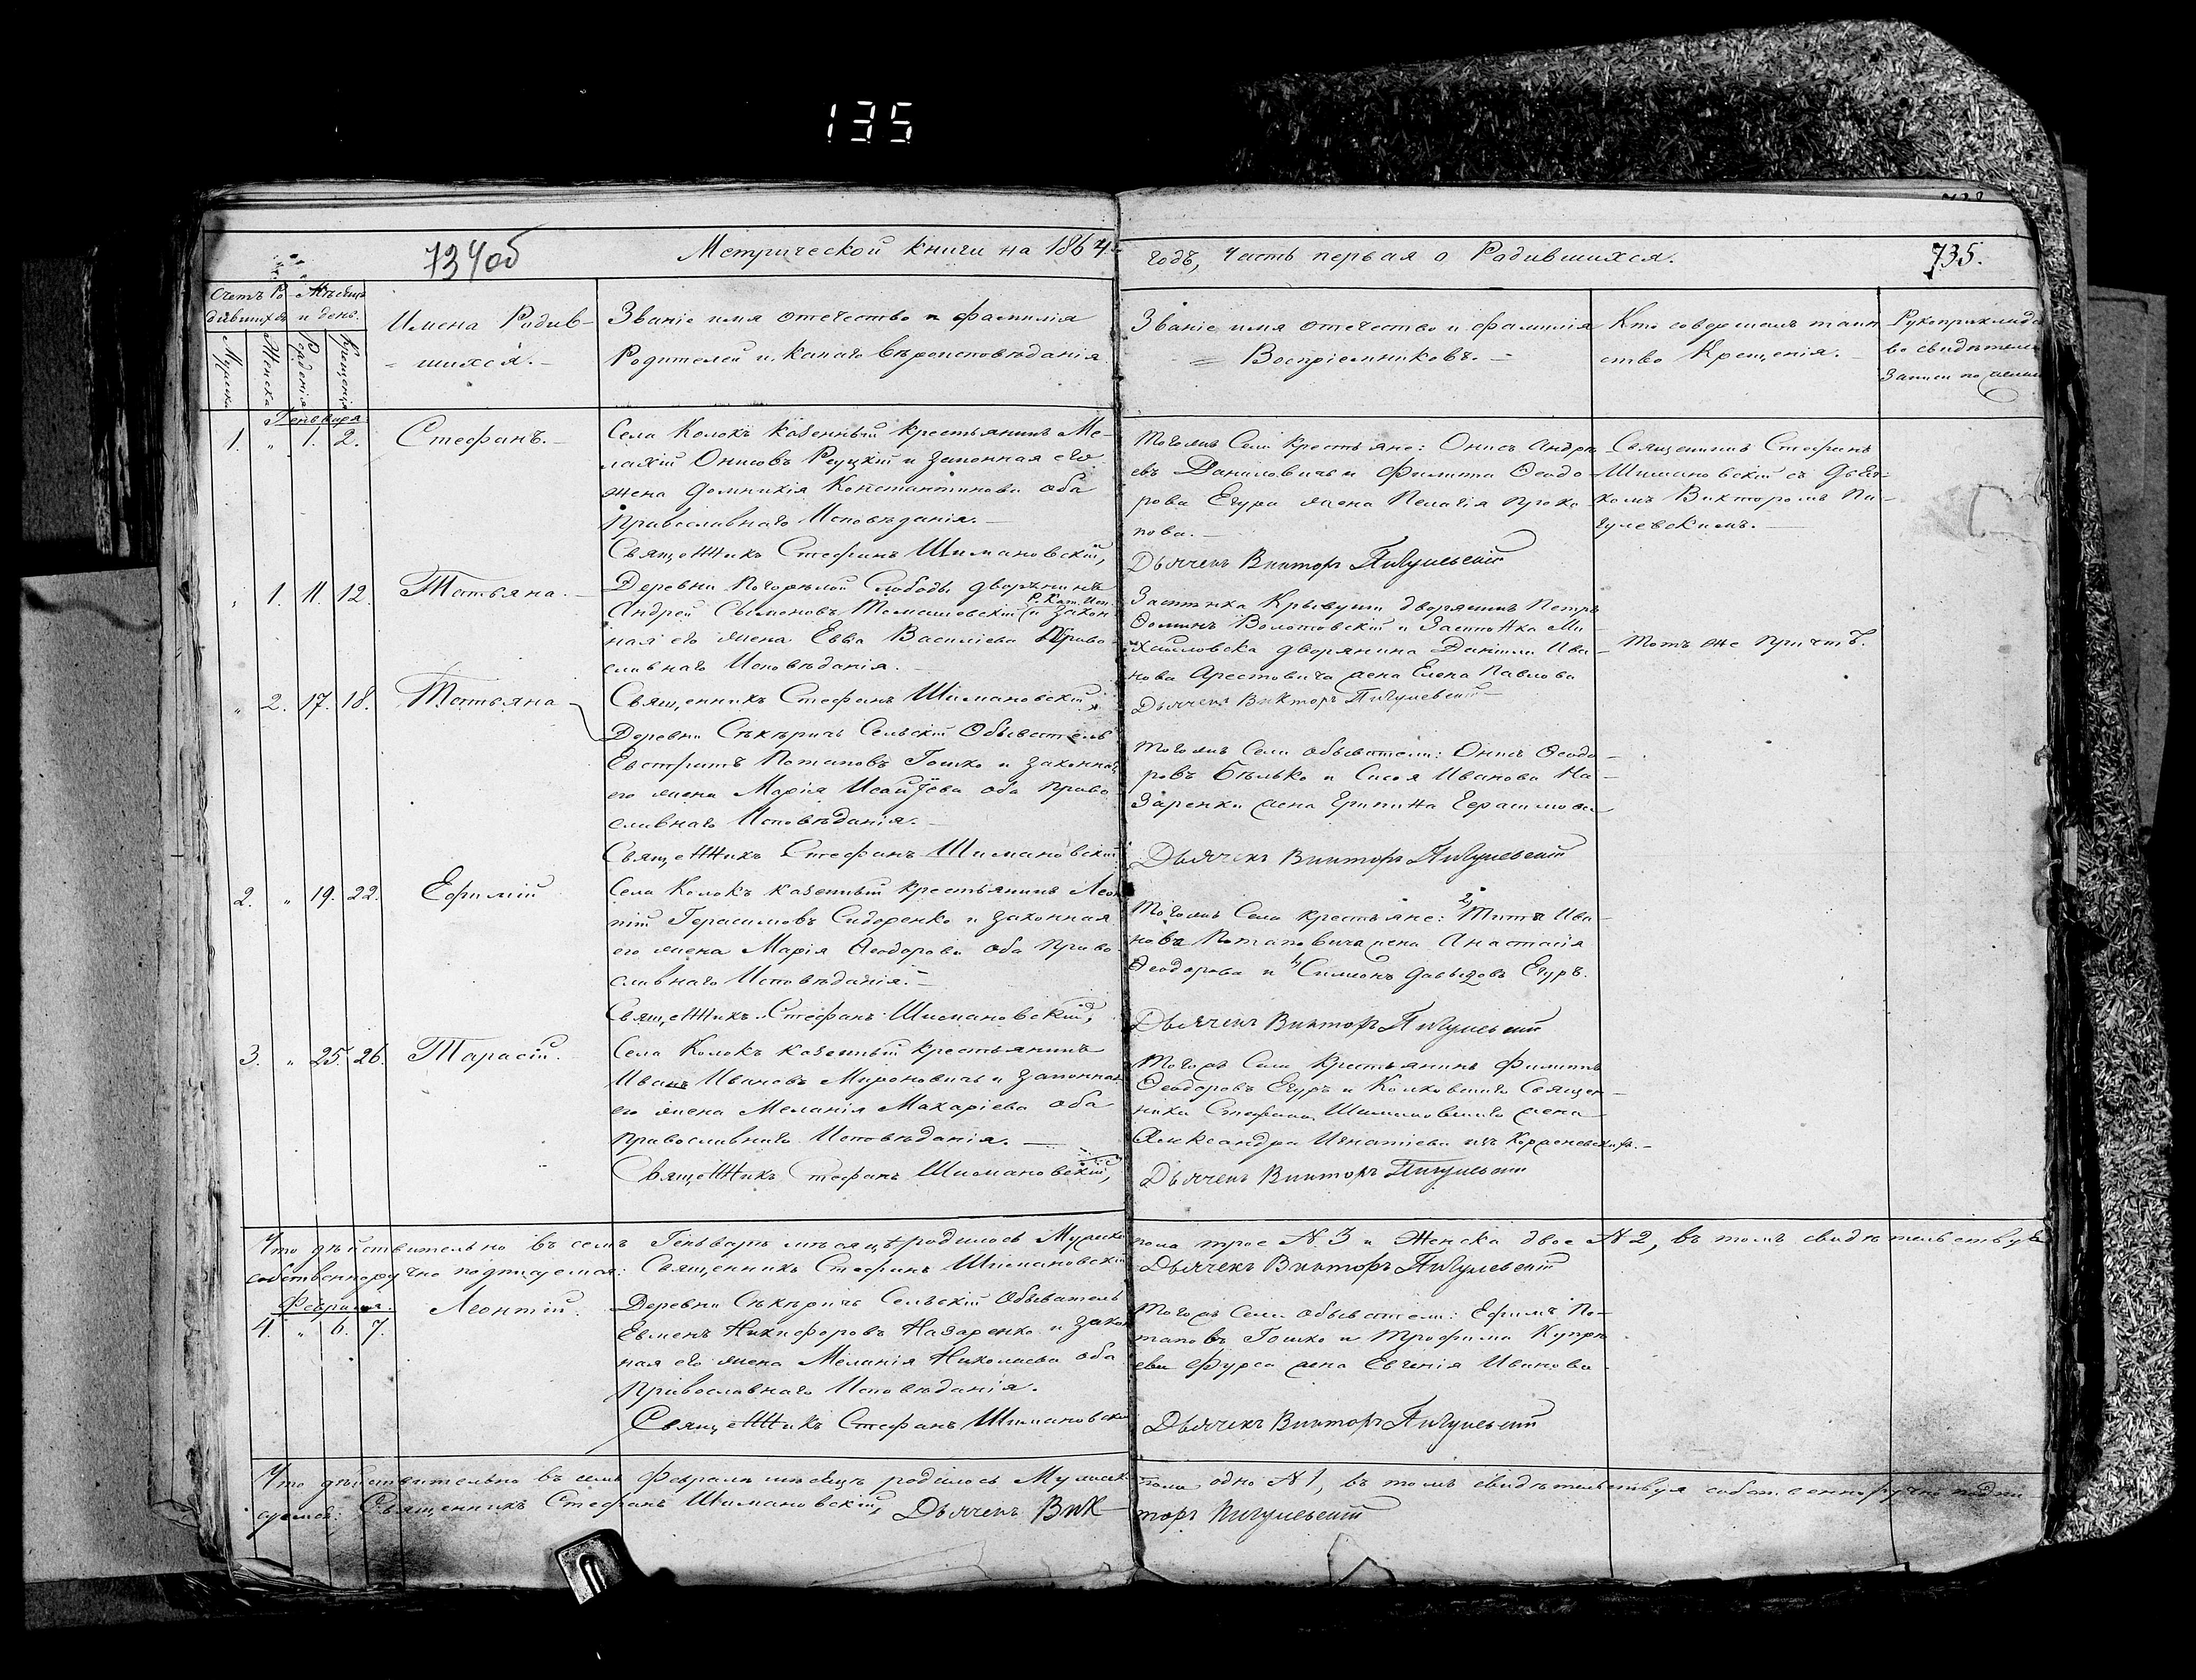 135
734об
Метрической книги на 1864.
годъ, часть первая о Родившихся.
735.
Счетъ Ро-
дившихся
Мѣсяцъ
и день.
Мужска
Женска
Рожденія
Крещенія
Имена Родив-
шихся.
Званіе имя отечество и фамилія
Родителей и какаго вѣроисповѣданія
Званіе имя отечество и фамилія
Воспріемниковъ.
Кто совершалъ таин
ство Крещенія.
Рукоприклад
во свидѣтел
Записи по
Генваря
1. " 1. 2. Стефанъ.
Села Колокъ казенный крестьянинъ Ме-
лахій Онисовъ Реуцкій и законная его
жена Домникія Константинова оба
Православнаго Исповѣданія.
Священникъ Стефанъ Шимановскій,
Тогожъ Села крестьяне: Онисъ Андре
евъ Даниловичь и Филипа Ѳеодо-
рова Егура жена Пелагія Проко-
пова.
Дьячекъ Викторъ Пигулевскій
Священникъ Стефанъ
Шимановскій съ Дьяч-
комъ Викторомъ Пи-
гулевскимъ.
" 1. 11. 12. Татьяна.
Деревни Погорѣлой Слободы дворянинъ
Андрей Сымоновъ Томашевскій (Р. Кат. Исп. и закон
ная его жена Евва Василіева Право
славнаго Исповѣданія.
Священникъ Стефанъ Шимановскій,
Застѣнка Крывуши дворянинъ Петръ
Ѳоминъ Волотовскій и Застѣнка Ми
хайловска дворянина Даніила Ива-
нова Арестовича жена Елена Павлова
Дьячекъ Викторъ Пигулевскій
Тотъ же причтъ.
" 2. 17. 18. Татьяна
Деревни Сѣкѣричь Сельскій Обыватель
Евстратъ Потаповъ Гошко и законная
его жена Марія Исаiева оба Право
славнаго Исповѣданія.
Священникъ Стефанъ Шимановскій
Тогожъ Села обыватели: Онисъ Ѳеодо-
ровъ Бѣлько и Сисоя Иванова На-
заренки жена Ерипина Герасимова
Дьячекъ Викторъ Пигулевскій
2. " 19. 22. Ефимій
Села Колокъ казенный крестьянинъ Леон
тій Герасимовъ Сидоренко и законная
его жена Марія Ѳеодорова оба Право
славнаго Исповѣданія.
Священникъ Стефанъ Шимановскій,
Тогожъ Села крестьяне: 2) Тита Ива-
нова Потаповича жена Анастасія
Ѳеодорова и 1) Симеонъ Давыдовъ Егуръ.
Дьячекъ Викторъ Пигулевскій
3. " 25. 26. Тарасій.
Села Колокъ казенный крестьянинъ
Иванъ Ивановъ Мироновичь и законная
его жена Меланія Макаріева оба
Православнаго Исповѣданія.
Священникъ Стефанъ Шимановскій,
Тогожъ Села крестьянинъ Филиппъ
Ѳеодоровъ Егуръ и Колковскаго Священ-
ника Стефана Шимановскаго жена
Александра Игнатіева изъ Корженевскихъ.
Дьячекъ Викторъ Пигулевскій
Что дѣйствительно въ семъ Генварѣ мѣсяцѣ родилось Мужска
пола трое N. 3 и Женска двое N 2, въ томъ свидѣтельствуя
собственноручно подписуемся: Священникъ Стефанъ Шимановскій
Дьячекъ Викторъ Пигулевскій
Февраля.
4. " 6. 7. Леонтій.
Деревни Сѣкѣричь Сельскій Обыватель
Евменъ Никифоровъ Назаренко и закон
ная его жена Меланія Николаева оба
Православнаго Исповѣданія.
Священникъ Стефанъ Шимановскі
Тогожъ Села обыватели: Ефимъ По-
таповъ Гошко и Трофима Купрі
ева Фурса жена Евгенія Иванова
Дьячекъ Викторъ Пигулевскій
Что дѣйствительно въ семъ Февралѣ мѣсяцѣ родилось Мужеск
пола одно N 1, въ томъ свидѣтельствуя собственноручно подпи
суемся: Священникъ Стефанъ Шимановскій, Дьячекъ Вик-
торъ Пигулевскій